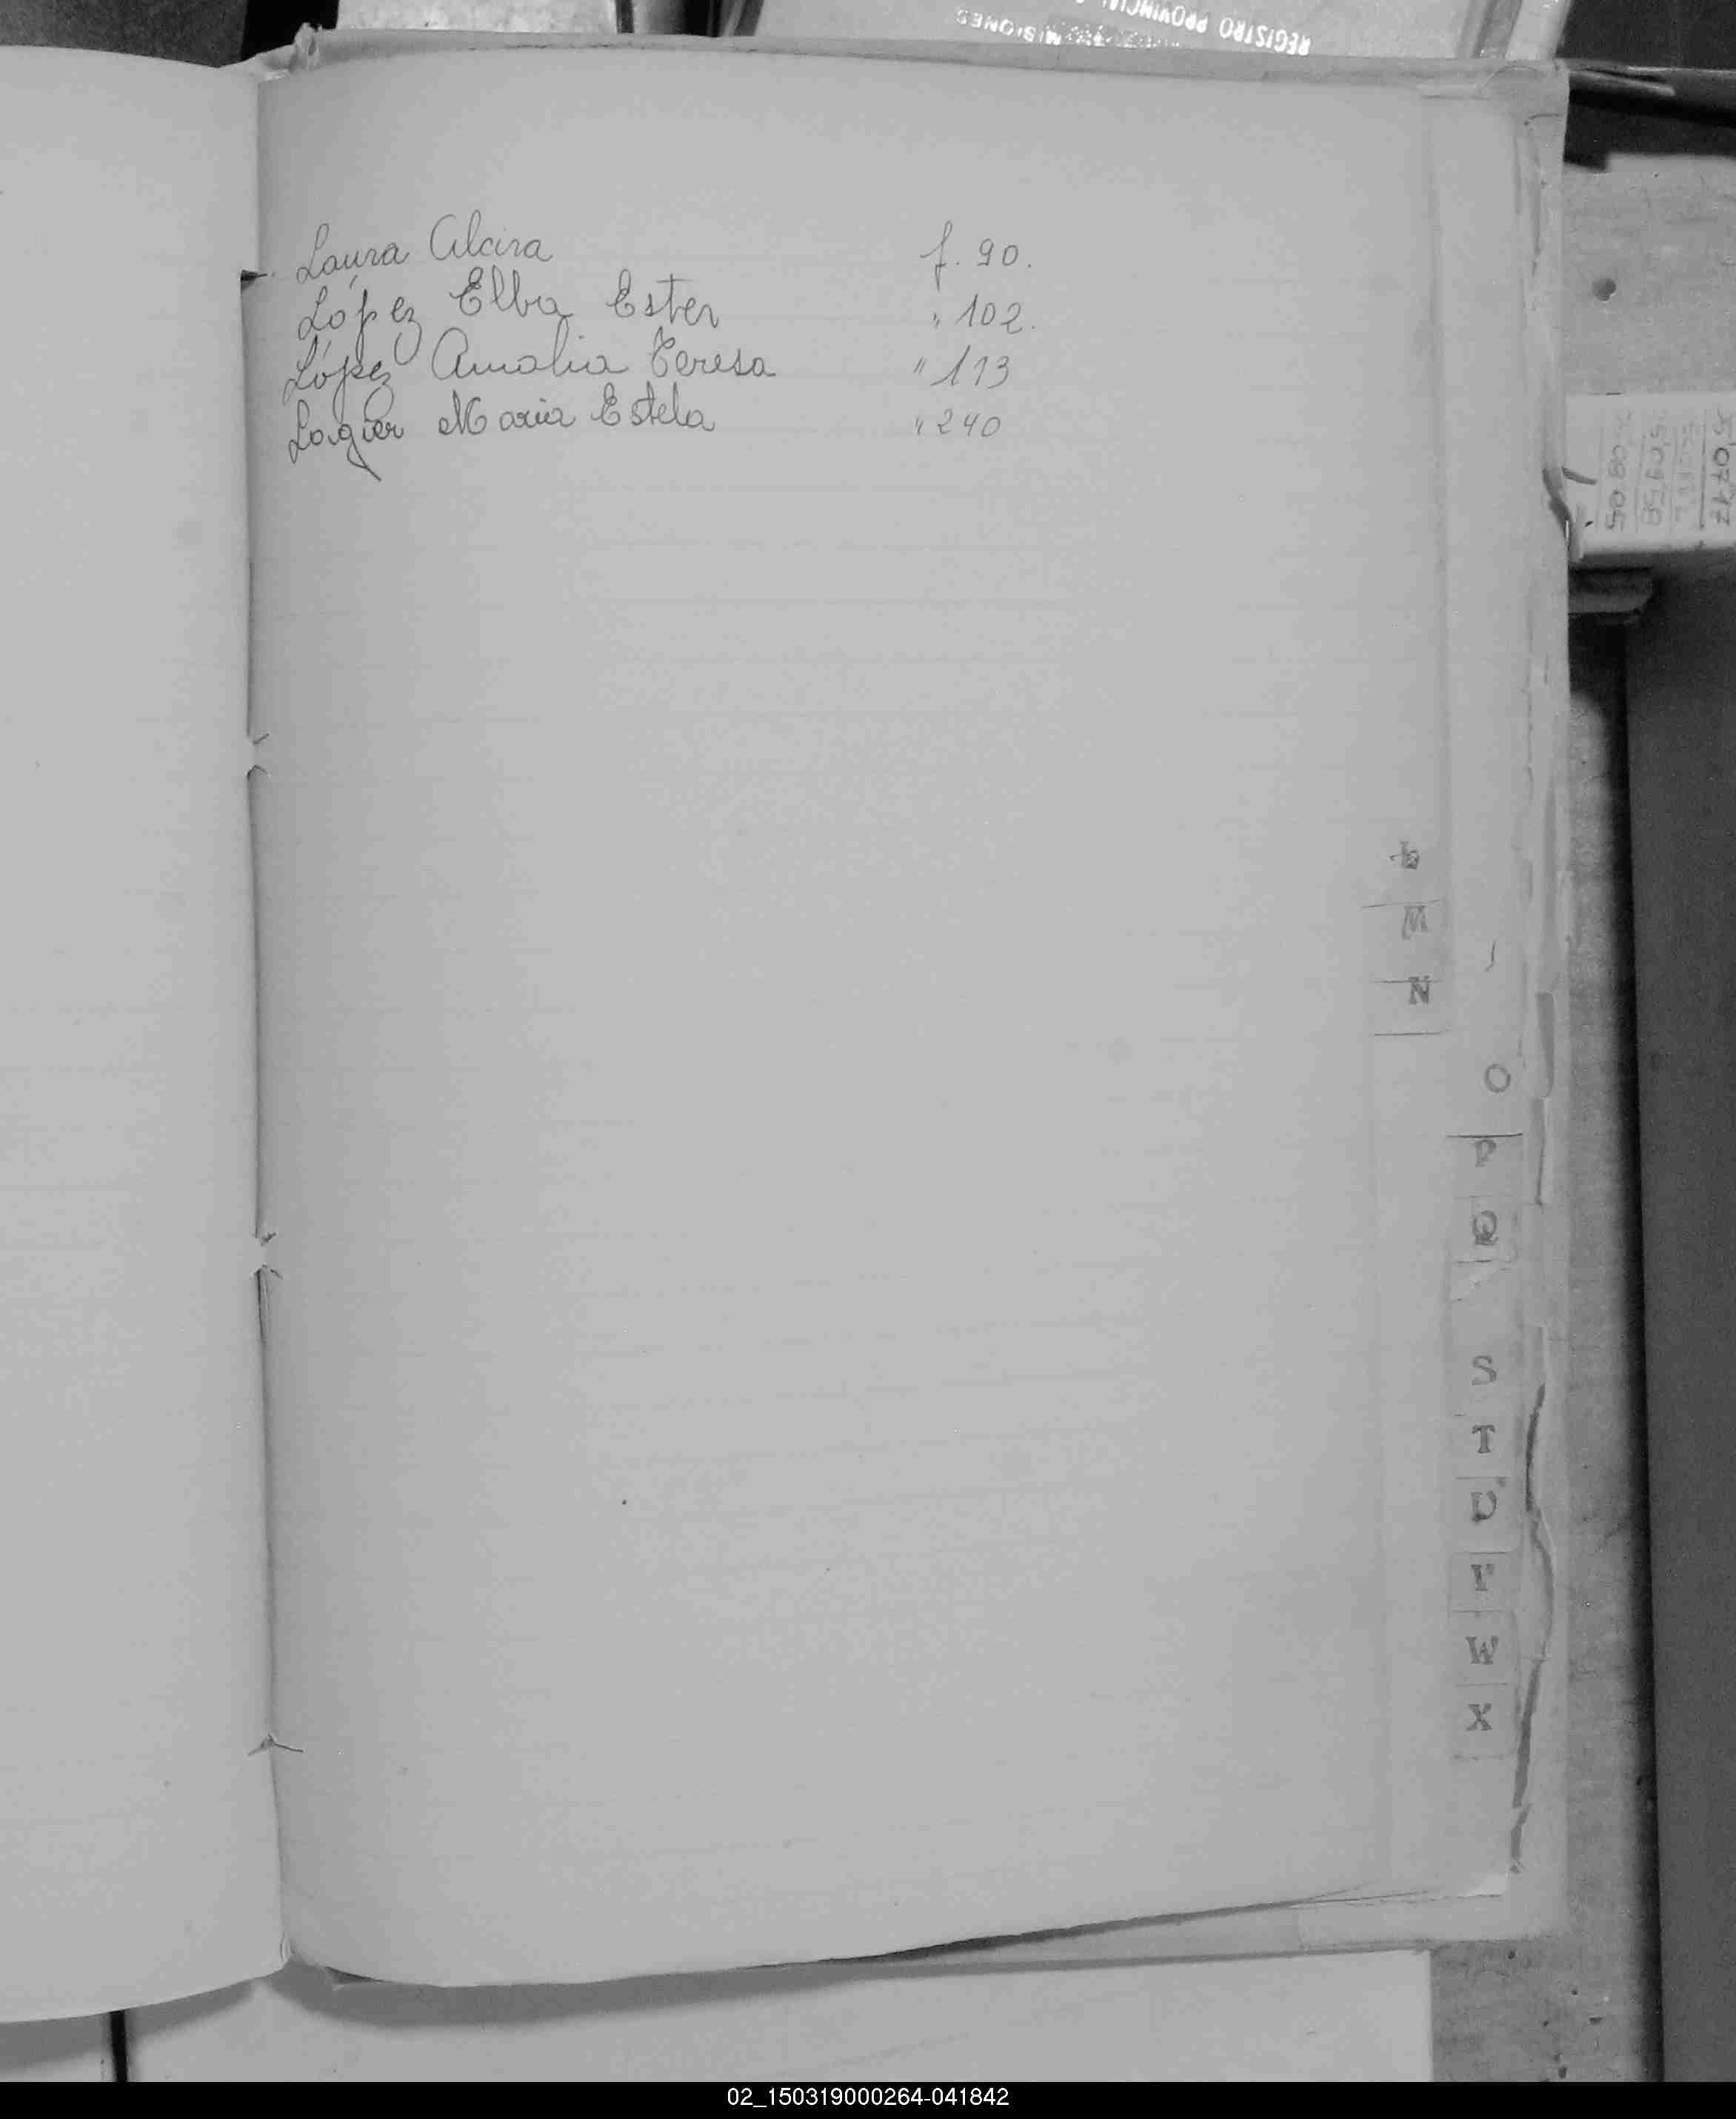 REGISTRO PROVINCIAL
MISIONES
Laura Alcira f. 90.
López Elba Ester " 102.
López Amalia Teresa " 113
Lagier Maria Estela " 240
L
M
N
O
P
Q
S
T
U
V
W
X
02_150319000264-041842